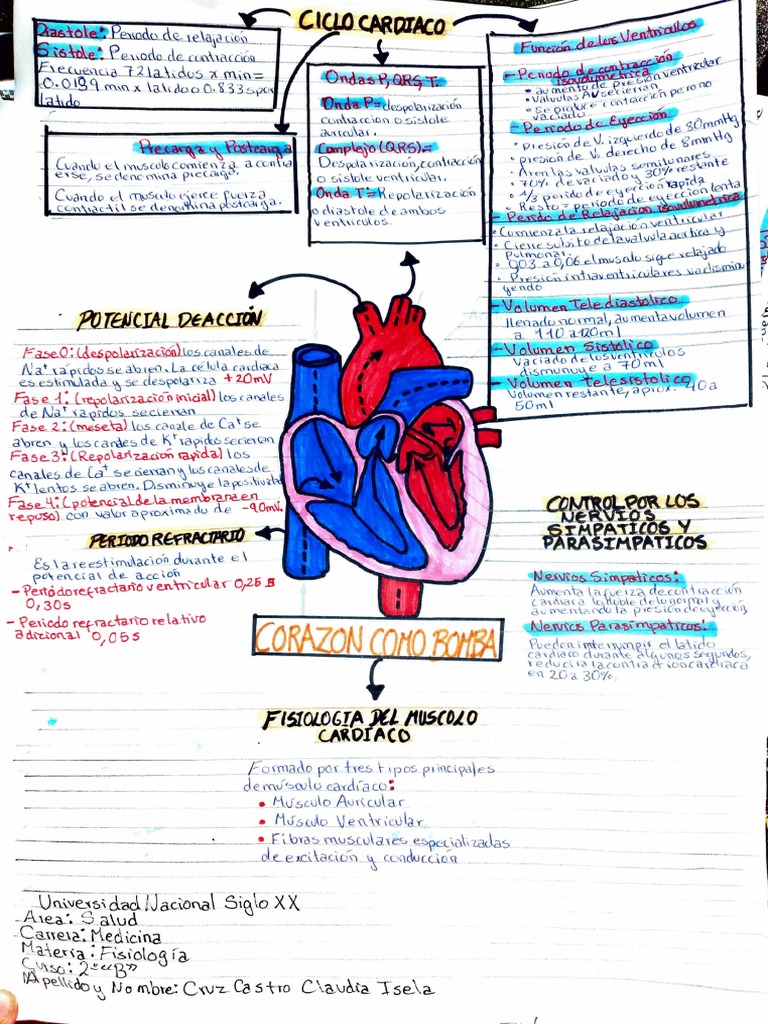 CICLO CARDIACO
Diastole: Periodo de relajación
Sistole: Periodo de contracción
Frecuencia 72 latidos x min=
0.0139 min x latido o 0.833s por
latido
Precarga y Postcarga
Cuando el musculo comienza a contra
erse, se denomina precaga.
Cuando el musculo ejerce fuerza
contractil se denomina postcarga.
Ondas P, QRS, T.
Onda P= despolarización
contracción o sistole
auricular.
Complejo (QRS)=
Despolarización, contracción
o sistole ventricular.
Onda T= Repolarización
o diastole de ambos
ventriculos.
Función de los Ventriculos
- Periodo de contracción
isovolumetrica
• aumento de presión ventricular
• Valvulas AV se cierran
• Se produce contracción pero no
vaciado
- Periodo de Eyección
• Presión de V. izquierdo de 80mmHg
• presión de V. derecho de 8mmHg
• Abren las valvulas semilunares
• 70% de vaciado y 30% restante
• 1/3 periodo de eyección rapida
• Resto = periodo de eyección lenta
- Periodo de Relajación isovolumetrica
• Comienza la relajación ventricular
• Cierre subito de la valvula aortica y
Pulmonar.
• 0,03 a 0,06 el musculo sigue relajado
• Presión intraventriculares va dismin
uyendo
- Volumen Telediastolico
llenado normal, aumenta volumen
a 110 a 120ml
- Volumen Sistolico
Vaciado de los ventriculos
dismunuye a 70ml
- Volumen Telesistolico
Volumen restante, aprox. 40 a
50ml
POTENCIAL DE ACCIÓN
Fase 0: (despolarización) los canales de
Na+ rapidos se abren. La célula cardiaca
es estimulada y se despolariza +20mV
Fase 1: (repolarización inicial) los canales
de Na+ rapidos se cierran
Fase 2: (meseta) los canale de Ca+ se
abren y los canales de K+ rapidos se cierran
Fase 3: (Repolarización rapida) los
canales de Ca+ se cierran y los canales de
K+ lentos se abren. Disminuye la positividad
Fase 4: (potencial de la membrana en
reposo) con valor aproximado de -90mV.
PERIODO REFRACTARIO
Es la reestimulación durante el
potencial de acción
- Periodo refractario ventricular 0,25 a
0,30s
- Periodo refractario relativo
adizional 0,05s
CONTROL POR LOS
NERVIOS
SIMPATICOS Y
PARASIMPATICOS
Nervios Simpaticos:
Aumenta la fuerza de contracción
cardiaca la doble de lo normal y
aumentando la presión de eyección
Nervios Parasimpaticos:
Pueden interrumpir el latido
cardiaco durante algunos segundos,
reducir a la contraction cardiaca
en 20 a 30%.
CORAZON COMO BOMBA
FISIOLOGIA DEL MUSCOLO
CARDIACO
Formado por tres tipos principales
de músculo cardíaco:
• Músculo Auricular
• Músculo Ventricular
• Fibras musculares especializadas
de excitación y conducción
Universidad Nacional Siglo XX
Area: Salud
Carrera: Medicina
Materia: Fisiología
Curso: 2º "B"
Apellido y Nombre: Cruz Castro Claudia Isela